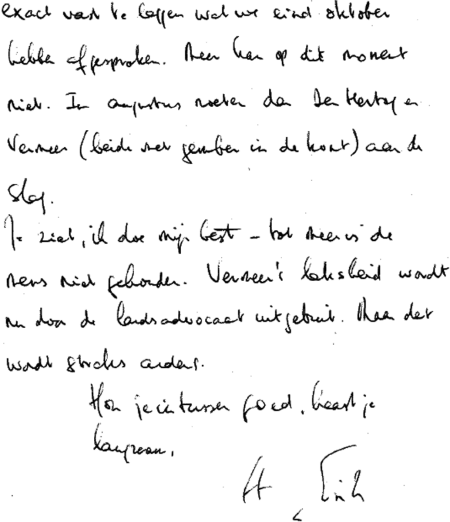 exact vast te leggen wat we eind oktober
hebben afgesproken. Meer kan op dit moment
niet. In augustus moeten dan Den Hertog en
Vermeer (beide met gember in de kont) aan de
slag.
Je ziet, ik doe mijn best – tot meer is de
mens niet gehouden. Vermeer's laksheid wordt
nu door de landsadvocaat uitgebuit. Maar dat
wordt straks anders.
Hou je intussen goed, haast je
langzaam,